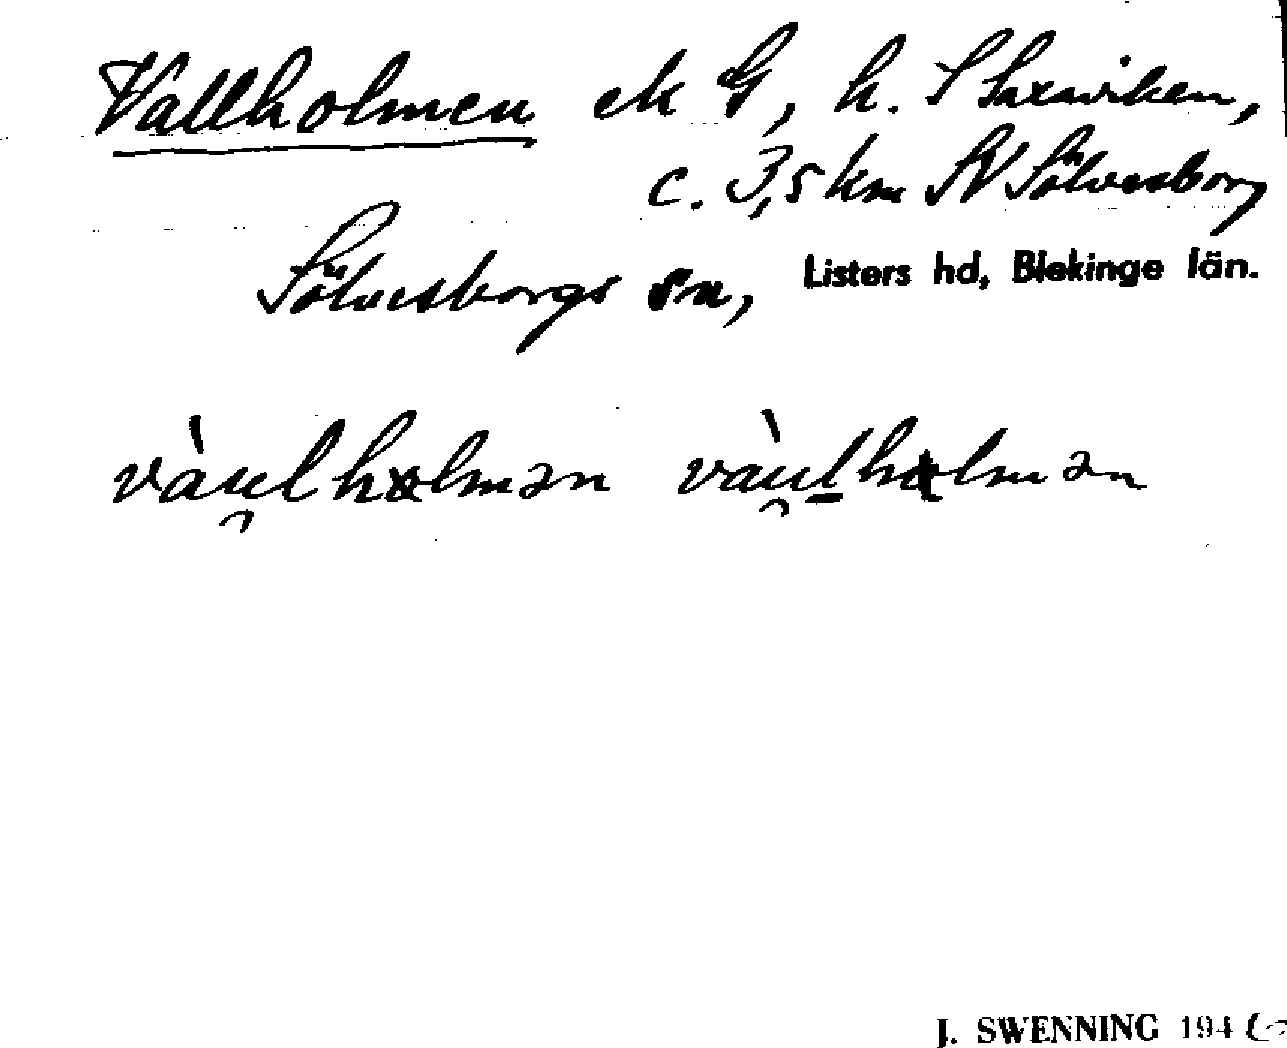 Vallholmen ek G, h. S Saxaviken,
c. 3,5 km SV Sölvesborg
Sölvesborgs sn, Listers hd, Blekinge län.
vàu̯lholmən vàu̯lholmən
J. SWENNING 194